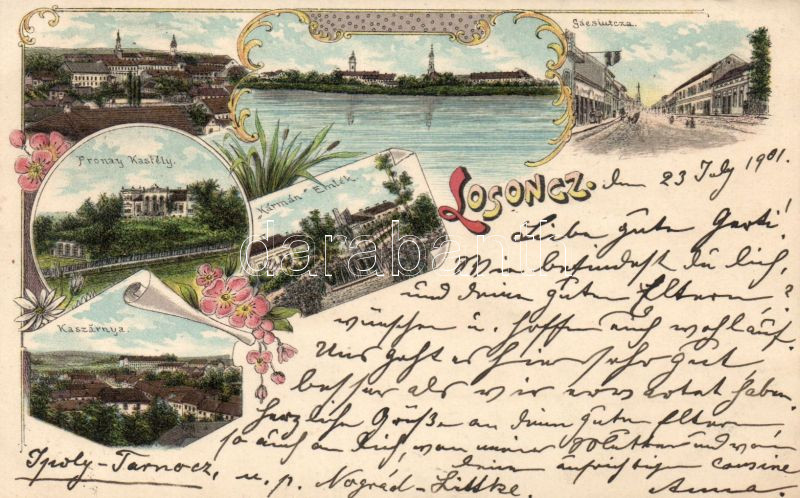 Gácsiutcza.
Pronay Kastély.
"Kármán" Emlék.
Kaszárnya.
Losoncz.
darabanth
den 23 July 1901.
Liebe gute Gerti!
Wie befindest du dich,
und deine guten Eltern?
wünschen u. hoffen auch wohlauf.
Uns geht es hier sehr gut,
besser als wir erwartet haben.
Herzliche Grüße an deine guten Eltern,
so auch an Dich, von meiner Mutter und von
deiner aufrichtigen cousine
Anna.
Ipoly-Tarnocz,
u. p. Nográd-Littke.